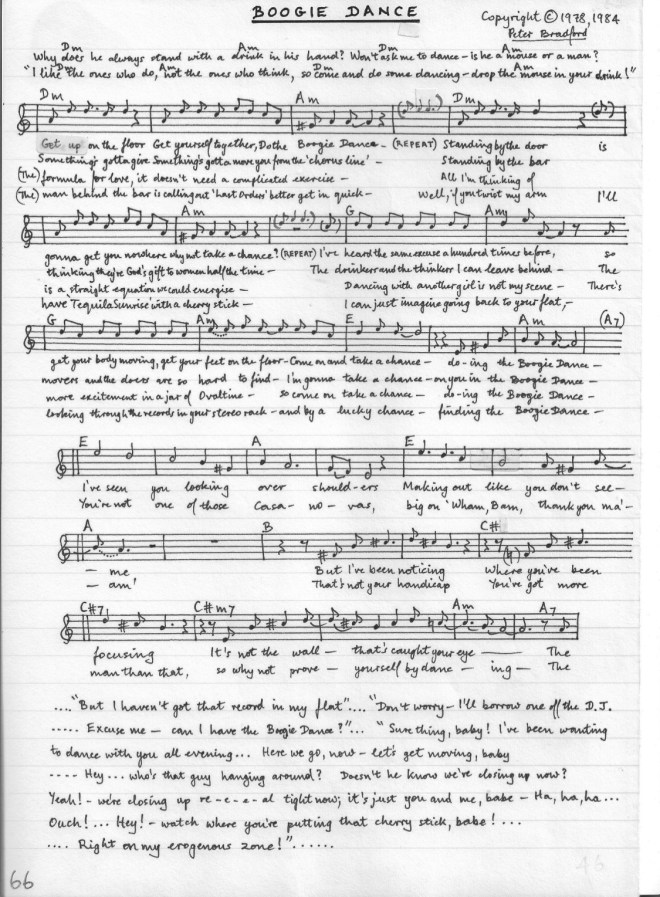 BOOGIE DANCE
Copyright © 1978, 1984
Peter Bradford
Dm Am Dm Am
Why does he always stand with a drink in his hand? Won't ask me to dance - is he a mouse or a man?
Dm Am Dm Am
"I like the ones who do, not the ones who think, so come and do some dancing - drop the mouse in your drink!"
Dm Am Dm
Get up on the floor Get yourself together, Do the Boogie Dance - (REPEAT) Standing by the door is
Something's gotta give Something's gotta move you from the 'chorus line' - Standing by the bar
(The) formula for love, it doesn't need a complicated exercise - All I'm thinking of
(The) man behind the bar is calling out 'Last Orders' better get in quick - Well, if you twist my arm I'll
Am G Am
gonna get you nowhere why not take a chance? (REPEAT) I've heard the same excuse a hundred times before, so
thinking they're God's gift to women half the time - The drinkers and the thinkers I can leave behind - The
is a straight equation we could energise - Dancing with another girl is not my scene - There's
have 'Tequila Sunrise' with a cherry stick - I can just imagine going back to your flat, -
G Am E Am (A7)
get your body moving, get your feet on the floor - Come on and take a chance - do-ing the Boogie Dance -
movers and the doers are so hard to find - I'm gonna take a chance - on you in the Boogie Dance -
more excitement in a jar of Ovaltine - so come on take a chance - do-ing the Boogie Dance -
looking through the records in your stereo rack - and by a lucky chance - finding the Boogie Dance -
E A E
I've seen you looking over should-ers Making out like you don't see -
You're not one of those Casa-no-vas, big on 'Wham, Bam, thank you ma'-
A B C#
- me But I've been noticing Where you've been
- am' That's not your handicap You've got more
C#7 C#m7 Am A7
focusing It's not the wall - that's caught your eye - The
man than that, so why not prove - yourself by danc - ing - The
...."But I haven't got that record in my flat".... "Don't worry - I'll borrow one off the D.J.
..... Excuse me - can I have the Boogie Dance?"... "Sure thing, baby! I've been wanting
to dance with you all evening... Here we go, now - let's get moving, baby
---- Hey... who's that guy hanging around? Doesn't he know we're closing up now?
Yeah! - we're closing up re-e-e-al tight now; it's just you and me, babe - Ha, ha, ha...
Ouch!... Hey! - watch where you're putting that cherry stick, babe!...
.... Right on my erogenous zone!"......
66
46